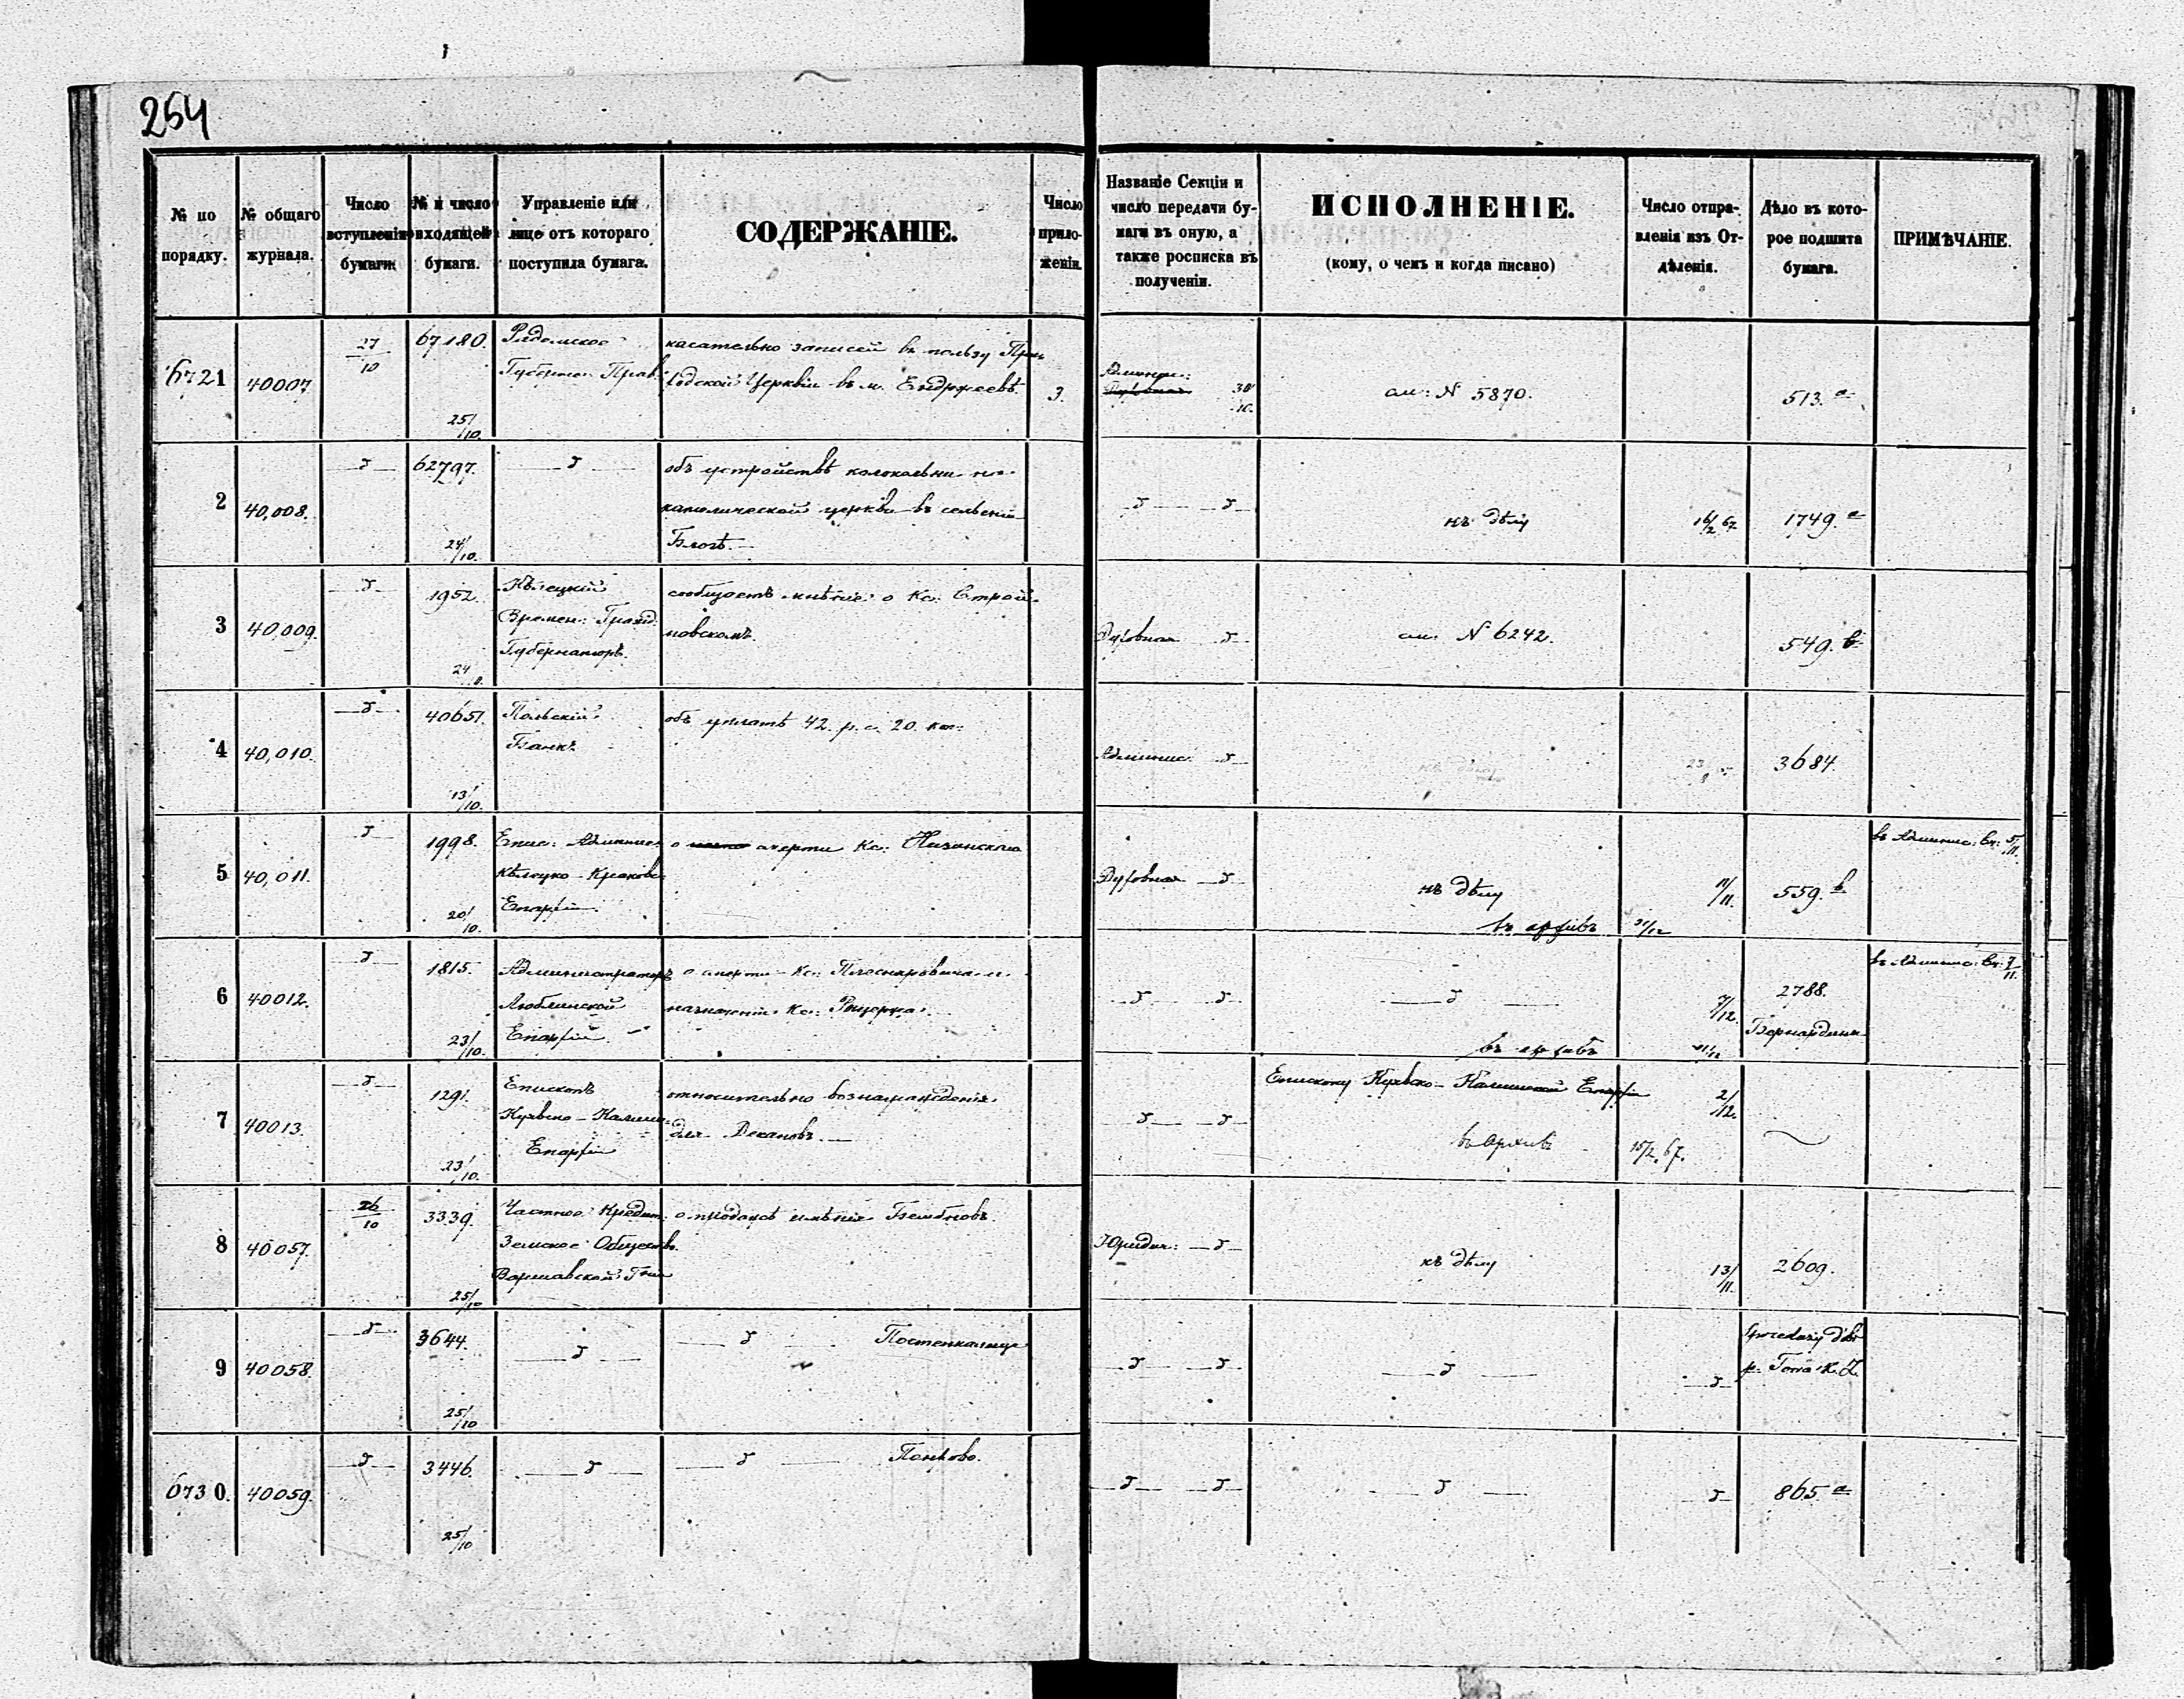 254
№ по порядку.
№ общаго журнала.
Число вступленія бумаги.
№ и число входящей бумаги.
Управленіе или лице отъ котораго поступила бумага.
СОДЕРЖАНІЕ.
Число приложенія.
Названіе Секціи и число передачи бумаги въ оную, а также росписка въ полученіи.
ИСПОЛНЕНІЕ.
(кому, о чемъ и когда писано)
Число отправленія изъ Отдѣленія.
Дѣло въ которое подшита бумага.
ПРИМѢЧАНІЕ.
6721 40007. 27/10 67180. 25/10.
Радомское
Губернс. Прав.
касательно записей въ пользу Прихо
дской Церквіи въ м. Енджеевѣ.
3.
Админис:
30/10.
см: N 5870.
513. a
2 40,008. 62797. 24/10.
объ устройствѣ колокольни
католической церкви въ селеніи
къ дѣлу 16/2 67 1749. a
3 40,009. 1952. 24
Кѣлецкій
Времен: Гражд.
Губернаторъ.
сообщаетъ мнѣніе о Кс: Строй
новскомъ.
Духовная
см: N 6242.
549. b
4 40,010. 40651. 13/10.
Польскій
Банкъ.
объ уплатѣ 42. р. с. 20. коп:
Админис:
къ дѣлу
3684.
5 40,011. 1998. 20/10.
Епис: Админис:
Кѣлецко-Краковс:
Епархіи.
о смерти Кс:
Духовная
къ дѣлу 11/11. 559. b
въ архивъ 31/12
въ Админис: Сек: 5/11.
6 40012. 1815. 23/10.
Администраторъ
Люблинской
Епархіи.
о смерти Кс:
назначеніи Кс:
7/12. 2788.
Бернардины
въ архивъ 31/12
въ Админис: Сек: 7/11.
7 40013. 1291. 23/10.
Епископъ
Куявско-Калиш.
Епархіи
относительно вознагражденія
для Декановъ.
Епископу Куявско-Калишской Епархіи 2/12.
въ Архивъ 15/2. 67.
8 40057. 26/10 3339. 25/10
Частное Кредит:
Земское Общество
Варшавской Губ:
о продажѣ имѣнія
Юридич:
къ дѣлу 13/11. 2609.
9 40058. 3644. 25/10
Sprzedaży dóbr
6730. 40059. 3446. 25/10
865 a